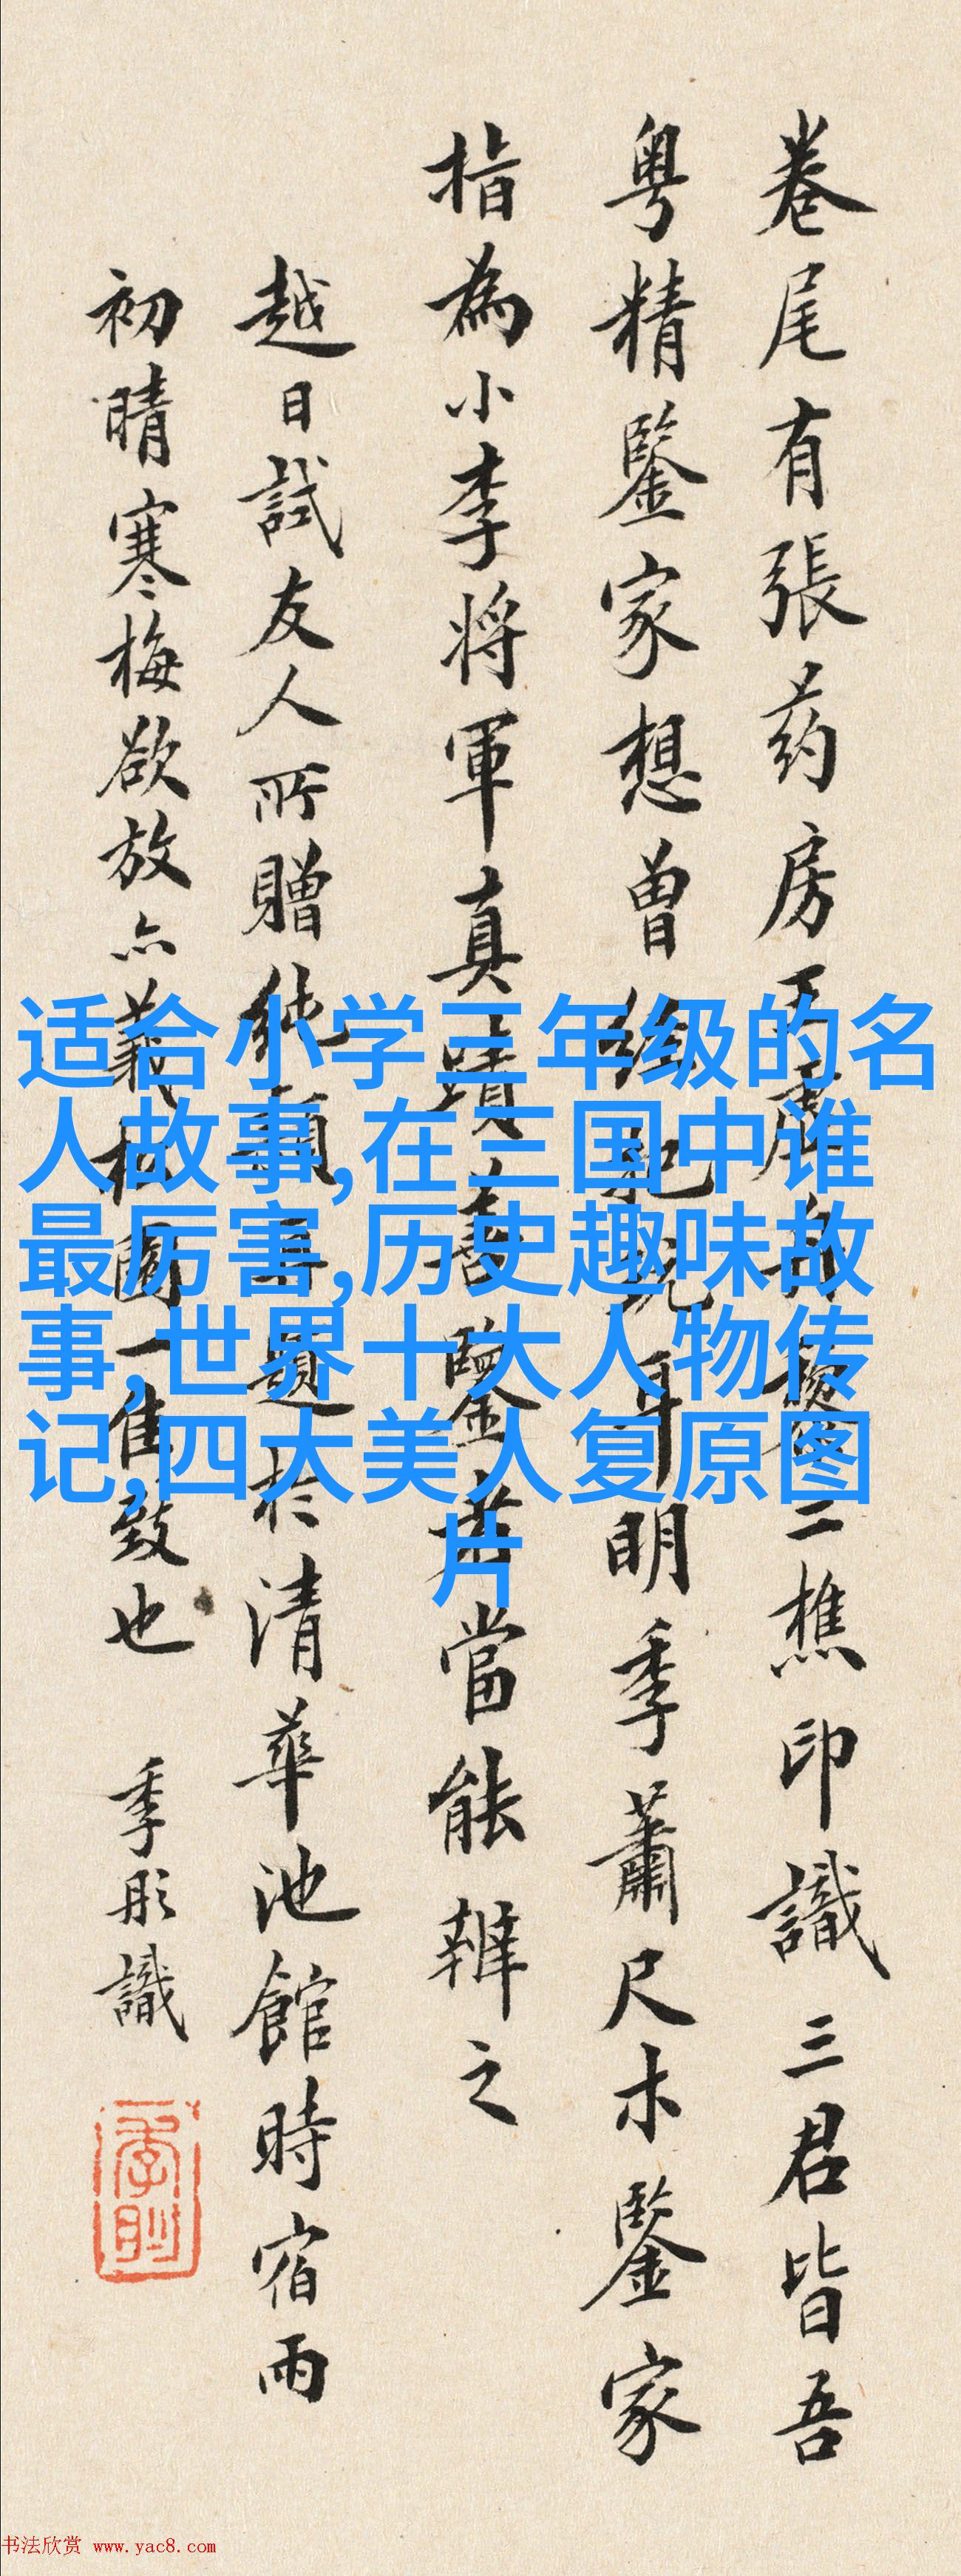 卷尾有張药房二樵印識三君皆吾
粤精鑒家想曽經耳明季蕭尺木鑒家
指為小李将軍真蹟善鑒者當能辨之
越日試友人所贈純再題於清華池館時宿雨
初晴寒梅欲放亦一佳致也 季彤識
适合小学三年级的名
人故事,在三国中谁
最厉害,历史趣味故
事,世界十大人物传
记,四大美人复原图
片
书法欣赏 www.yac8.com